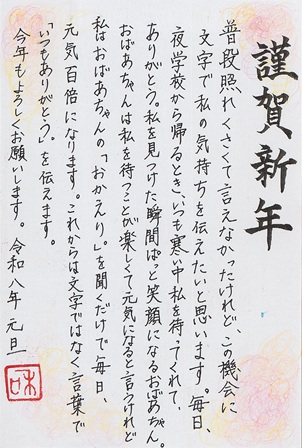 謹賀新年
普段照れくさくて言えなかったけれど、この機会に
文字で私の気持ちを伝えたいと思います。毎日、
夜学校から帰るとき、いつも寒い中私を待ってくれて、
ありがとう。私を見つけた瞬間ぱっと笑顔になるおばあちゃん。
おばあちゃんは私を待つことが楽しくて元気になると言うけれど
私はおばあちゃんの「おかえり。」を聞くだけで毎日、
元気百倍になります。これからは文字ではなく言葉で
「いつもありがとう。」を伝えます。
今年もよろしくお願いします。 令和八年 元旦